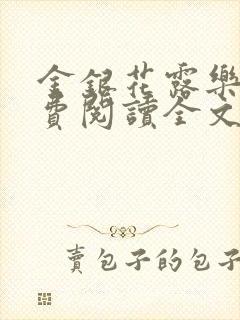 金銀花露樂
費閱讀全文
賣包子的包子